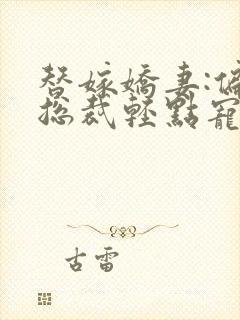 替嫁嬌妻:偏
總裁輕點寵
古雷